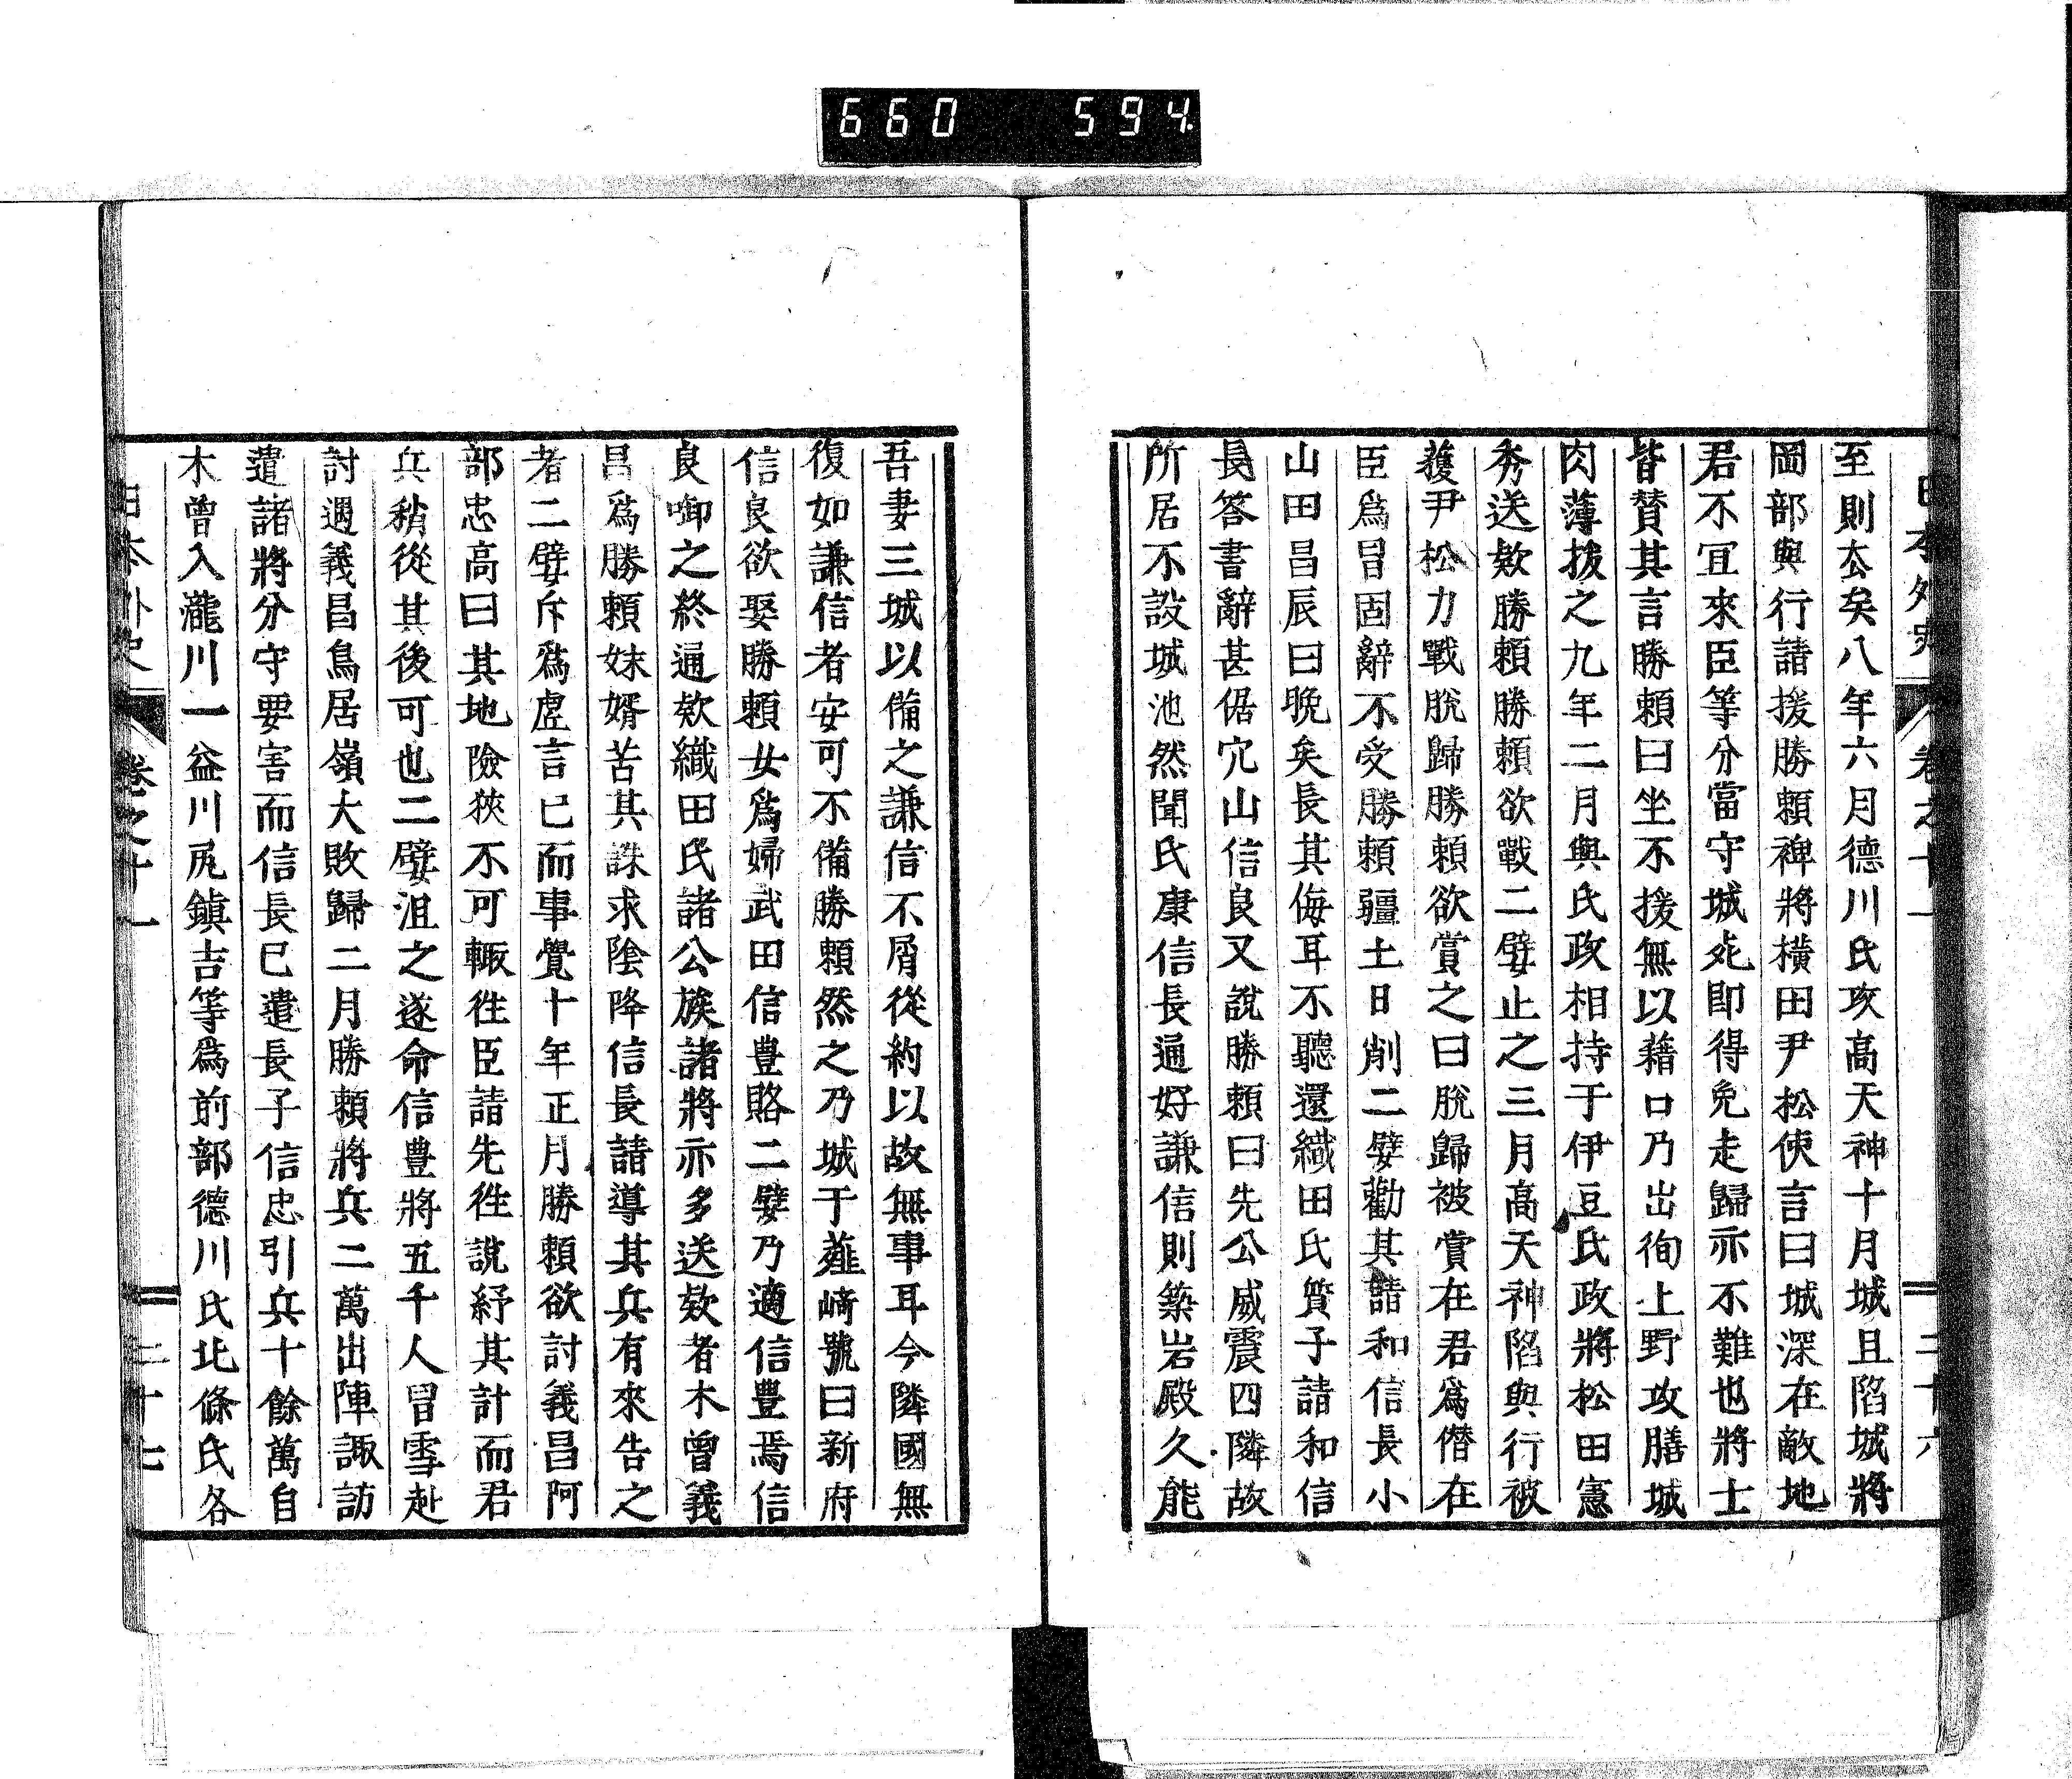 660 594
日本外史 卷之十一 二十六
至則厺矣八年六月德川氏攻高天神十月城且陷城將
岡部與行請援勝賴裨將橫田尹松使言曰城深在敵地
君不宜來臣等分當守城死即得免走歸亦不難也將士
皆贊其言勝賴曰坐不援無以藉口乃出徇上野攻膳城
肉薄拔之九年二月與氏政相持于伊豆氏政將松田憲
秀送欵勝賴勝賴欲戰二嬖止之三月高天神陷與行被
獲尹松力戰脫歸勝賴欲賞之曰脫歸被賞在君爲僭在
臣爲冒固辭不受勝賴疆土日削二嬖勸其請和信長小
山田昌辰曰晚矣長其侮耳不聽還織田氏質子請和信
長答書辭甚倨穴山信良又說勝賴曰先公威震四隣故
所居不設城池然聞氏康信長通好謙信則築岩殿久能
吾妻三城以備之謙信不屑從約以故無事耳今隣國無
復如謙信者安可不備勝賴然之乃城于韮崎號曰新府
信良欲娶勝賴女爲婦武田信豊賂二嬖乃適信豊焉信
良啣之終通欵織田氏諸公族諸將亦多送欵者木曾義
昌爲勝賴妹婿苦其誅求陰降信長請導其兵有來告之
者二嬖斥爲虛言已而事覺十年正月勝賴欲討義昌阿
部忠高曰其地險狹不可輙徃臣請先徃說紓其計而君
兵稍從其後可也二嬖沮之遂命信豊將五千人冒雪赴
討遇義昌鳥居嶺大敗歸二月勝賴將兵二萬出陣諏訪
遣諸將分守要害而信長已遣長子信忠引兵十餘萬自
木曾入瀧川一益川尻鎭吉等爲前部德川氏北條氏各
日本外史 卷之十一 二十七